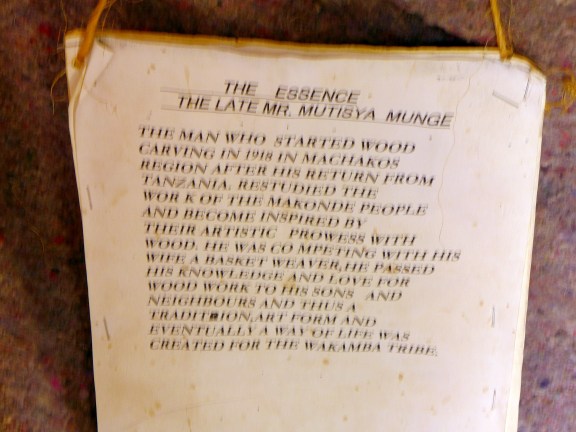 THE ESSENCE
THE LATE MR. MUTISYA MUNGE
THE MAN WHO STARTED WOOD
CARVING IN 1918 IN MACHAKOS
REGION AFTER HIS RETURN FROM
TANZANIA. RESTUDIED THE
WOR K OF THE MAKONDE PEOPLE
AND BECOME INSPIRED BY
THEIR ARTISTIC PROWESS WITH
WOOD. HE WAS CO MPETING WITH HIS
WIFE A BASKET WEAVER,HE PASSED
HIS KNOWLEDGE AND LOVE FOR
WOOD WORK TO HIS SONS AND
NEIGHBOURS AND THUS A
TRADITION,ART FORM AND
EVENTUALLY A WAY OF LIFE WAS
CREATED FOR THE WAKAMBA TRIBE.